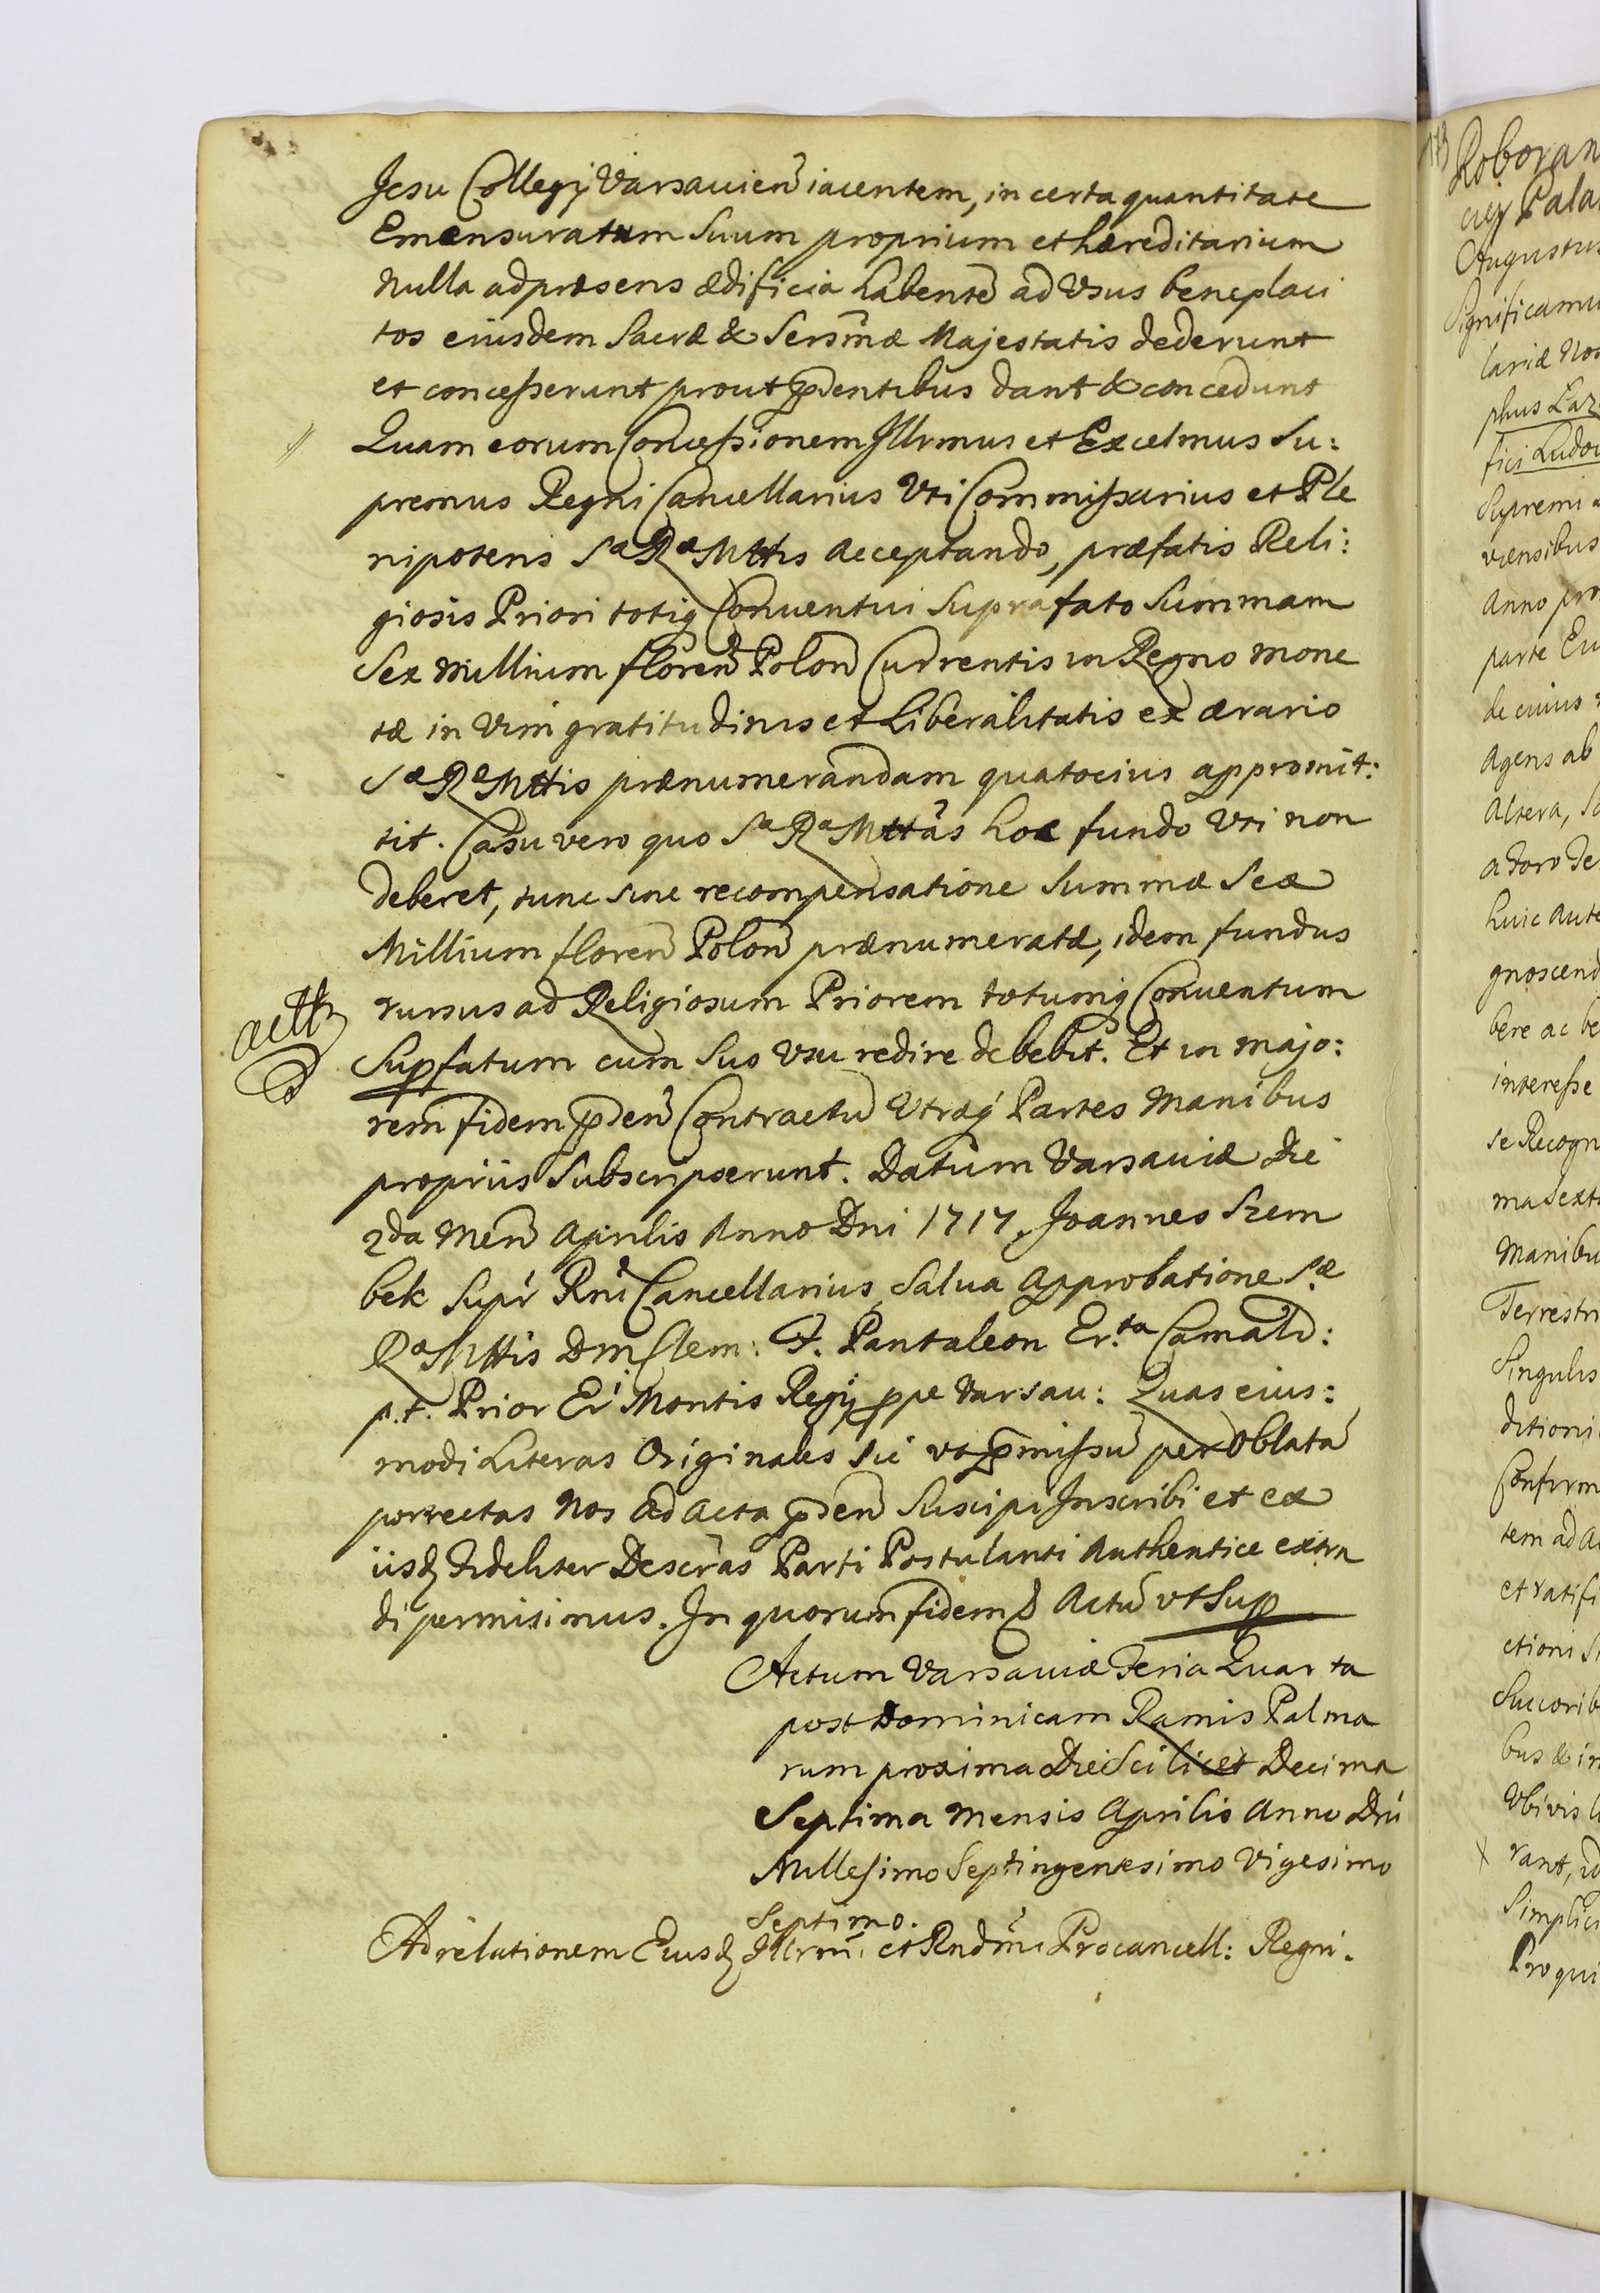 Jesu Collegÿ Varsavien̄ iacentem, in certa quantitate
Emensuratum Suum proprium et hæreditarium
Nulla ad præsens ædificia habentē ad Vsus beneplaci
tos eiusdem Sacræ & Sersm̄æ Majestatis dederunt
et conceſserunt prout p̄sentibus dant & concedunt
Quam eorum Conceſsionem Jllrmus et Excelmus Su:
premus Regni Cancellarius Vti Commiſsarius et Ple
nipotens Sæ Ræ Mttis Acceptando, præfatis Reli:
giosis Priori totiq Conuentui Suprafato Summam
Sex Millium floren̄ Polon̄ Currentis in Regno mone
tæ in Vim gratitudinis et Liberalitatis ex ærario
Sæ Ræ Mttis prænumerandam quatocius appromit:
tit. Casu vero quo Sa Ra Mttās hoc fundo Vti non
deberet, tunc sine recompensatione Summæ Sex
Millium floren̄ Polon̄ prænumeratæ, idem fundus
rursus ad Religiosum Priorem totumq Conuentum
Supfatum cum Suo Vsu redire debebit. Et in majo:
rem fidem p̄sen̄ Contractū Vtræq Partes Manibus
propriis Subscripserunt. Datum Varsaviæ Die
2da Men̄ Aprilis Anno Dni 1717. Joannes Szem
bek Supr Rni Cancellarius, Salua Approbatione Sæ
Ræ Mttis Dni Clem: F. Pantaleon Er.ta Camald:
p.t. Prior Eri Montis Regÿ ppe Varsau: Quas eius:
modi Literas Originales sic vt p̄miſsū per Oblatā
porrectas Nos ad Acta p̄sen̄ Suscipi Jnscribi et ex
iisd Fideliter Descrās Parti Postulanti Authentice extra
di permisimus. Jn quorum fidem & Actū vt Sup
Actum Varsaviæ Feria Quarta
post Dominicam Ramis Palma
rum proxima Die Scilicet Decima
Septima Mensis Aprilis Anno Dni
Milleſimo Septingentesimo Vigesimo
Septimo.
Ad relationem Eiusd Jllrmi et Rndmi Procancell: Regni.
173
Roboran
Augustus
Significamu
lariæ Nos
phus Laz
fici Ludov
Supremi
vensibus
Anno pro
parte Eu
de cuius
Agens ab
Altera, So
a foro de
huic Aute
gnoscend
bere ac be
intereſse
se Recogn
ma Sexta
Manibu
Terrestri
Singulis
ditioni
Confirm
tem ad Ac
et ratifi
ctioni S
Succorib
bus & in
Vbivis l
rant, id
Simplici
Pro qui